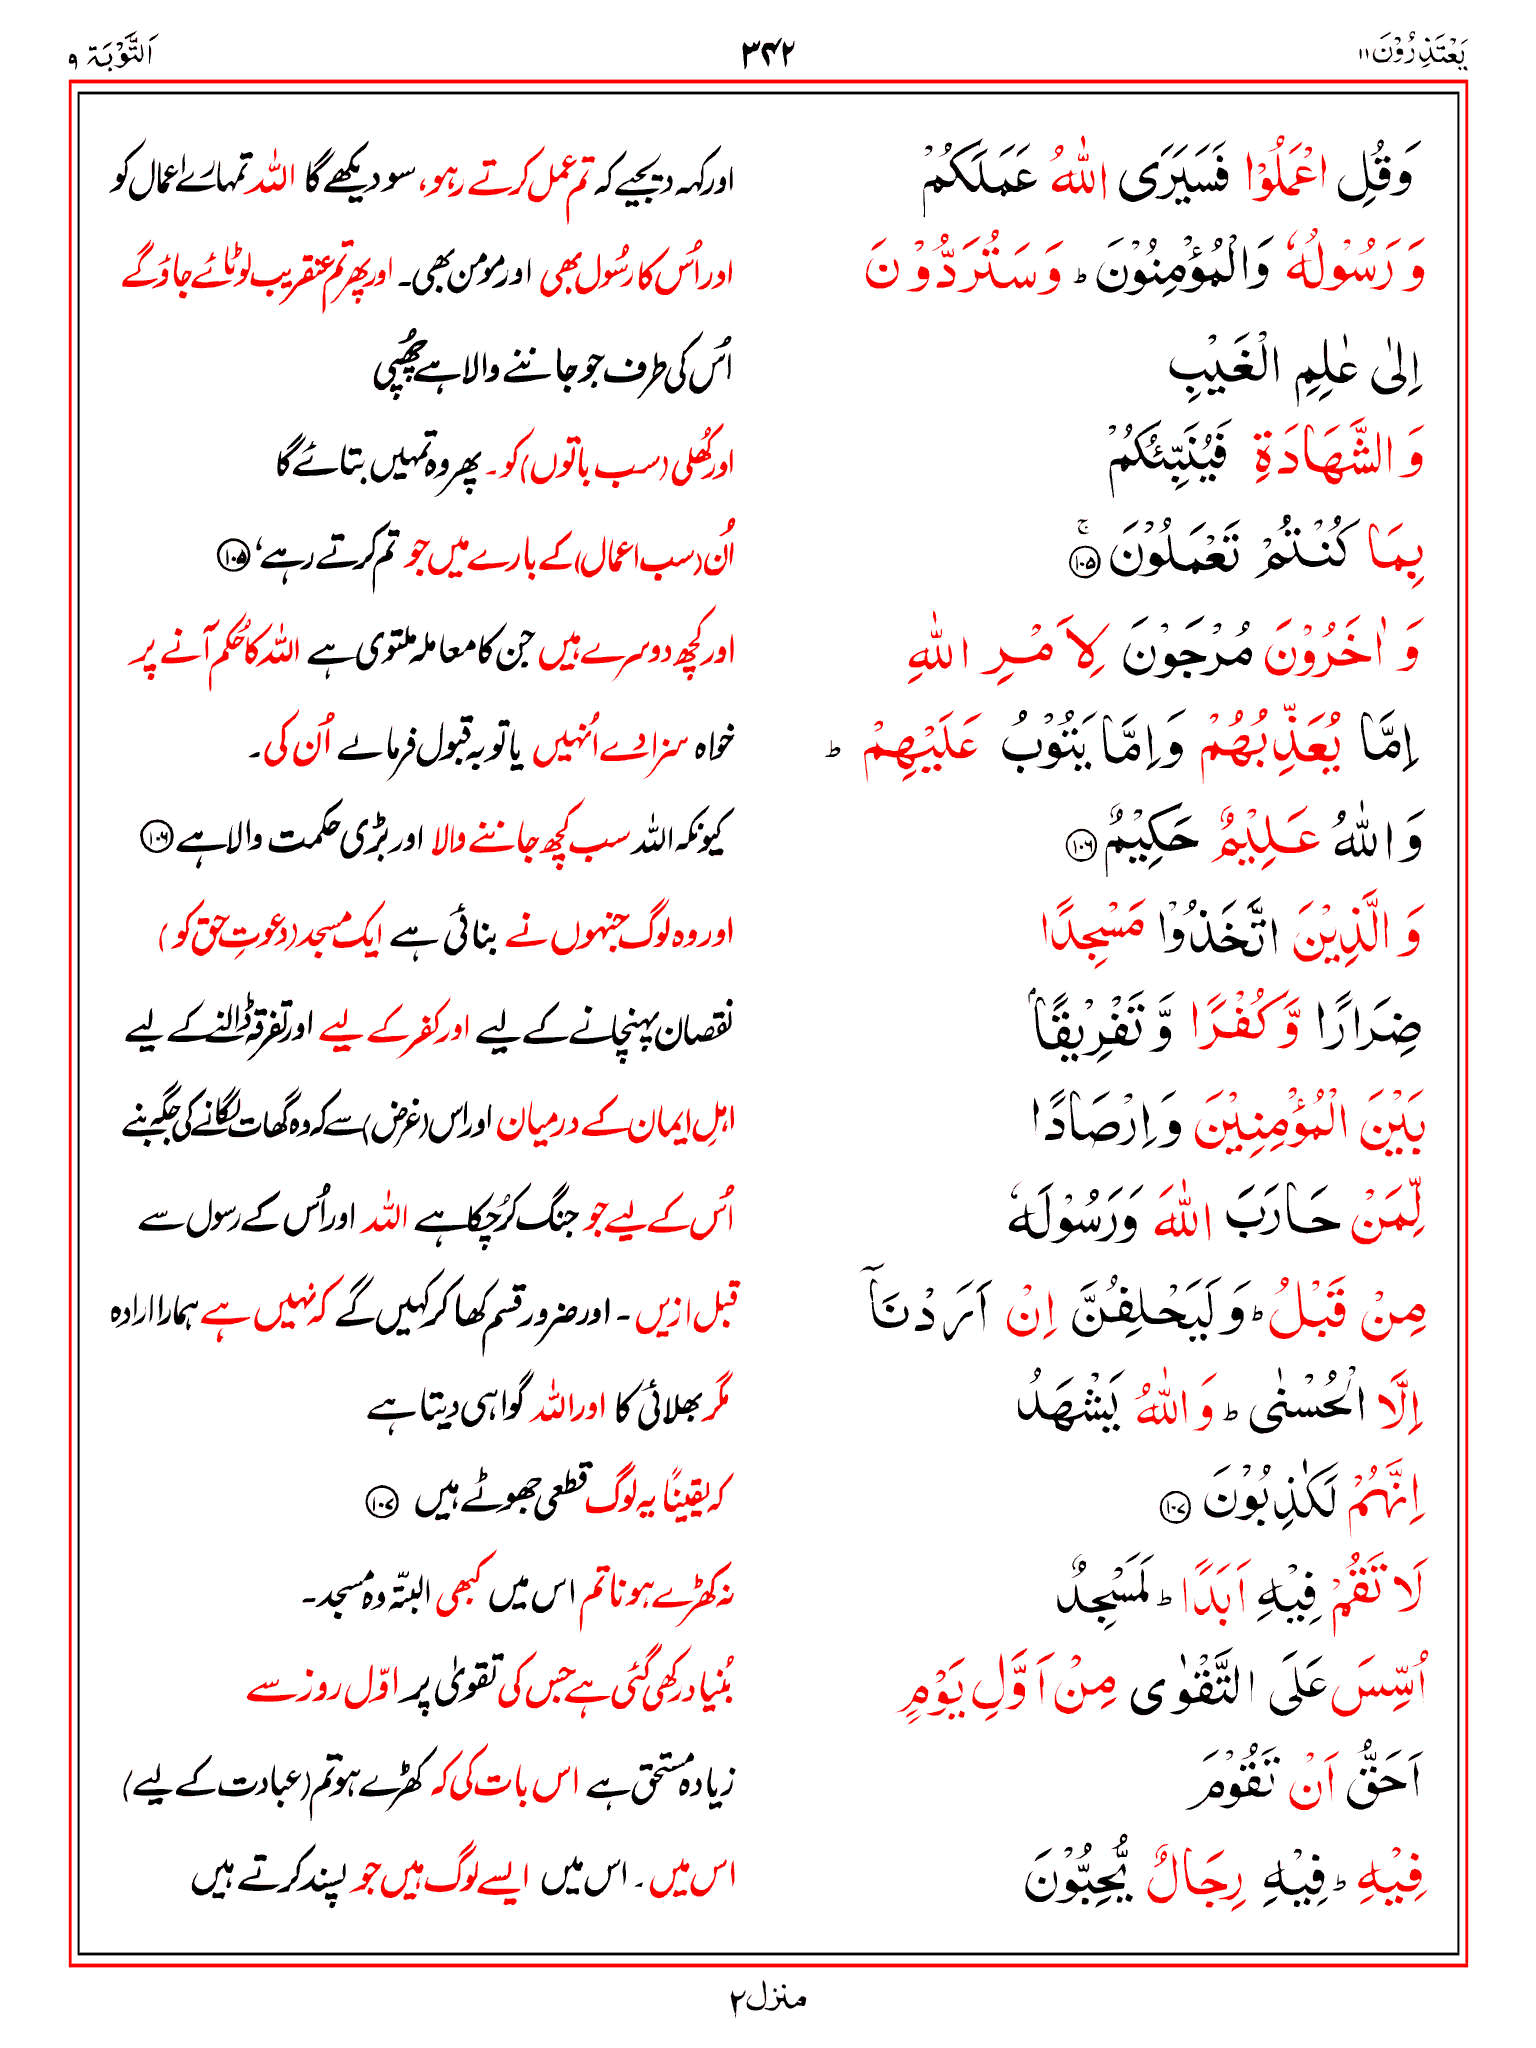 يَعْتَذِرُوْنَ ۱۱
۳۴۲
اَلتَّوْبَة ۹
وَقُلِ اعْمَلُوْا فَسَيَرَى اللّٰهُ عَمَلَكُمْ
اور کہہ دیجیے کہ تم عمل کرتے رہو، سو دیکھے گا اللہ تمہارے اعمال کو
وَ رَسُوْلُهٗ وَالْمُؤْمِنُوْنَ ؕ وَسَتُرَدُّوْنَ
اور اُس کا رسُول بھی اور مومن بھی۔ اور پھر تم عنقریب لوٹائے جاؤ گے
اِلٰى عٰلِمِ الْغَيْبِ
اُس کی طرف جو جاننے والا ہے چھُپی
وَ الشَّهَادَةِ فَيُنَبِّئُكُمْ
اور کھُلی (سب باتوں) کو۔ پھر وہ تمہیں بتائے گا
بِمَا كُنْتُمْ تَعْمَلُوْنَ ۚ ۱۰۵
اُن (سب اعمال) کے بارے میں جو تم کرتے رہے، ۱۰۵
وَ اٰخَرُوْنَ مُرْجَوْنَ لِاَمْرِ اللّٰهِ
اور کچھ دوسرے ہیں جن کا معاملہ ملتوی ہے اللہ کا حُکم آنے پر
اِمَّا يُعَذِّبُهُمْ وَاِمَّا يَتُوْبُ عَلَيْهِمْ ؕ
خواہ سزا دے اُنہیں یا توبہ قبول فرمالے اُن کی۔
وَ اللّٰهُ عَلِيْمٌ حَكِيْمٌ ۱۰۶
کیونکہ اللہ سب کچھ جاننے والا اور بڑی حکمت والا ہے ۱۰۶
وَ الَّذِيْنَ اتَّخَذُوْا مَسْجِدًا
اور وہ لوگ جنہوں نے بنائی ہے ایک مسجد (دعوتِ حق کو)
ضِرَارًا وَّ كُفْرًا وَّ تَفْرِيْقًاۢ
نقصان پہنچانے کے لیے اور کفر کے لیے اور تفرقہ ڈالنے کے لیے
بَيْنَ الْمُؤْمِنِيْنَ وَ اِرْصَادًا
اہلِ ایمان کے درمیان اور اِس (غرض) سے کہ وہ گھات لگانے کی جگہ بنے
لِّمَنْ حَارَبَ اللّٰهَ وَرَسُوْلَهٗ
اُس کے لیے جو جنگ کر چُکا ہے اللہ اور اُس کے رسول سے
مِنْ قَبْلُ ؕ وَ لَيَحْلِفُنَّ اِنْ اَرَدْنَاۤ
قبل ازیں۔ اور ضرور قسم کھا کر کہیں گے کہ نہیں ہے ہمارا ارادہ
اِلَّا الْحُسْنٰى ؕ وَ اللّٰهُ يَشْهَدُ
مگر بھلائی کا اور اللہ گواہی دیتا ہے
اِنَّهُمْ لَكٰذِبُوْنَ ۱۰۷
کہ یقیناً یہ لوگ قطعی جھوٹے ہیں ۱۰۷
لَا تَقُمْ فِيْهِ اَبَدًا ؕ لَمَسْجِدٌ
نہ کھڑے ہونا تم اس میں کبھی البتّہ وہ مسجد۔
اُسِّسَ عَلَى التَّقْوٰى مِنْ اَوَّلِ يَوْمٍ
بُنیاد رکھی گئی ہے جس کی تقویٰ پر اوّل روز سے
اَحَقُّ اَنْ تَقُوْمَ
زیادہ مستحق ہے اس بات کی کہ کھڑے ہو تم (عبادت کے لیے)
فِيْهِ ؕ فِيْهِ رِجَالٌ يُّحِبُّوْنَ
اس میں۔ اس میں ایسے لوگ ہیں جو پسند کرتے ہیں
منزل ۲